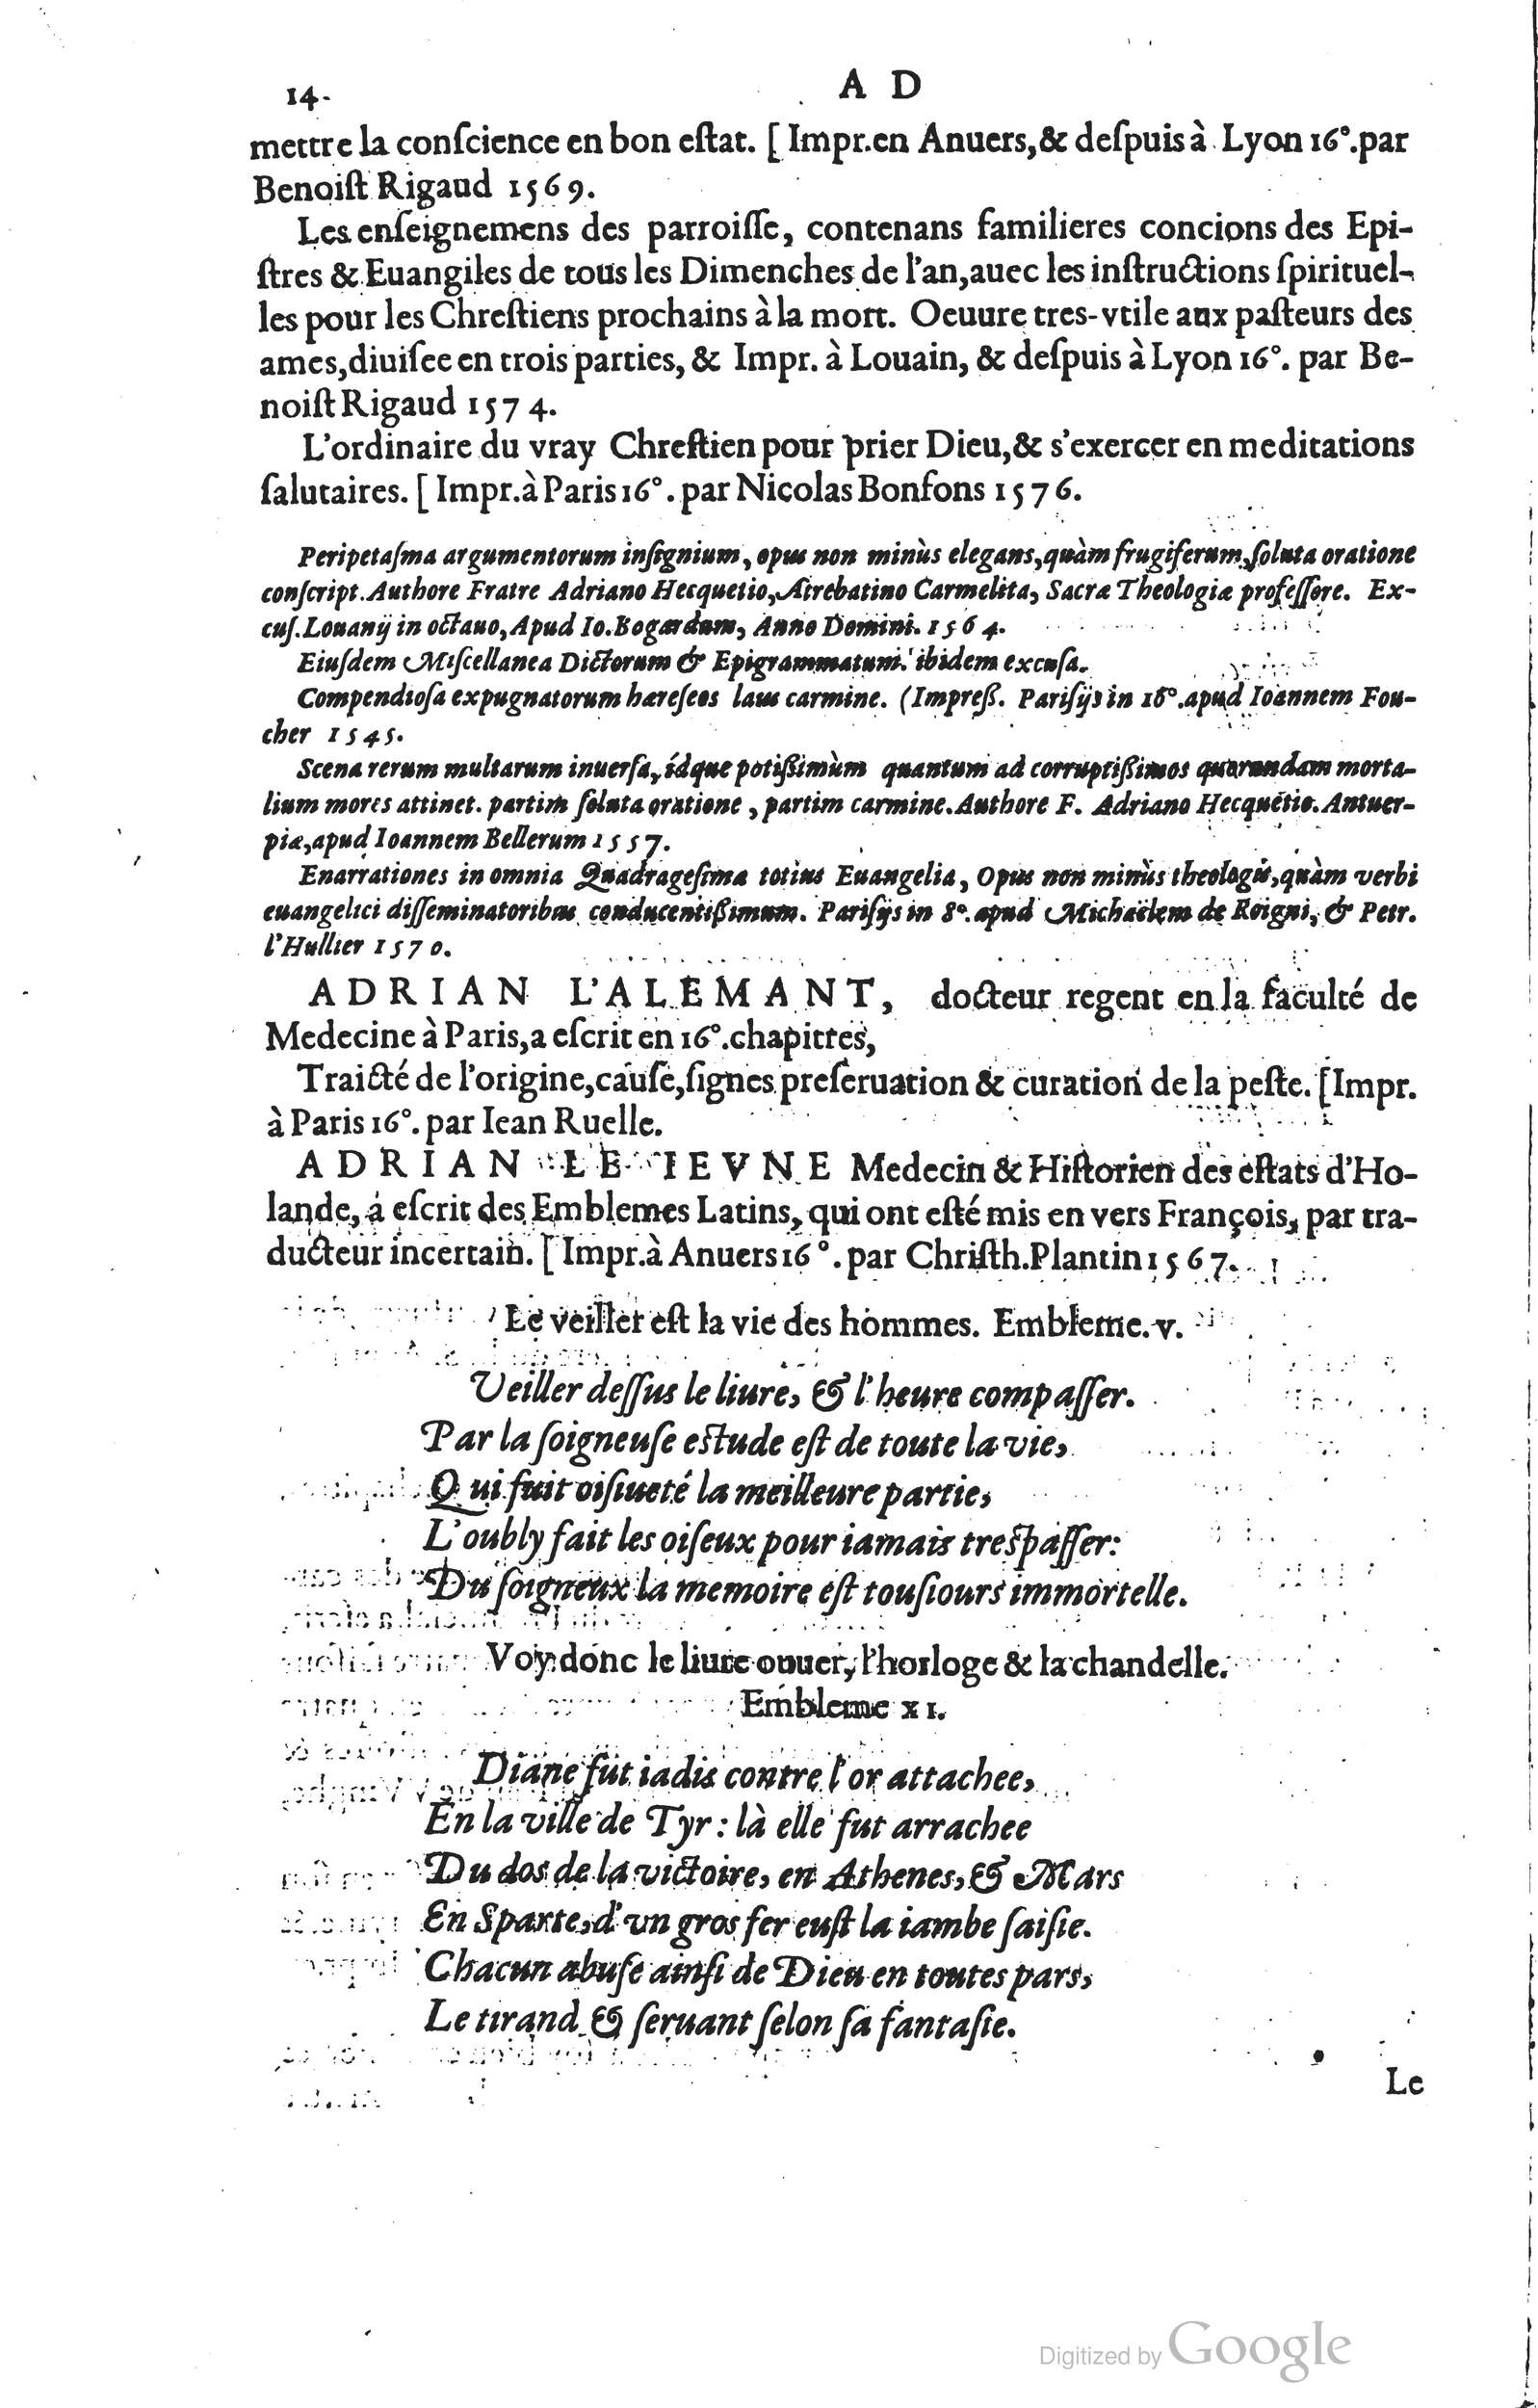 14.
A D
mettre la conſcience en bon eſtat. [ Impr. en Anuers, & deſpuis à Lyon 16°. par
Benoiſt Rigaud 1569.
Les enſeignemens des parroiſſe, contenans familieres concions des Epi-
ſtres & Euangiles de tous les Dimenches de l'an, auec les inſtructions ſpirituel-
les pour les Chreſtiens prochains à la mort. Oeuure tres-vtile aux paſteurs des
ames, diuiſee en trois parties, & Impr. à Louain, & deſpuis à Lyon 16°. par Be-
noiſt Rigaud 1574.
L'ordinaire du vray Chreſtien pour prier Dieu, & s'exercer en meditations
ſalutaires. [ Impr. à Paris 16°. par Nicolas Bonfons 1576.
Peripetaſma argumentorum inſignium, opus non minùs elegans, quàm frugiferum, ſoluta oratione
conſcript. Authore Fratre Adriano Hecquetio, Atrebatino Carmelita, Sacræ Theologiæ profeſſore. Ex-
cuſ. Louanij in octauo, Apud Io. Bogardum, Anno Domini. 1564.
Eiuſdem Miſcellanea Dictorum & Epigrammatum. ibidem excuſa.
Compendioſa expugnatorum hæreſeos laus carmine. (Impreß. Pariſijs in 16°. apud Ioannem Fou-
cher 1545.
Scena rerum multarum inuerſa, ídque potißimùm quantum ad corruptißimos quorundam morta-
lium mores attinet. partim ſoluta oratione, partim carmine. Authore F. Adriano Hecquetio. Antuer-
piæ, apud Ioannem Bellerum 1557.
Enarrationes in omnia Quadrageſima totius Euangelia, Opus non minùs theologis, quàm verbi
euangelici diſſeminatoribus conducentißimum. Pariſijs in 8°. apud Michaëlem de Roigni, & Petr.
l'Hullier 1570.
ADRIAN L'ALEMANT, docteur regent en la faculté de
Medecine à Paris, a eſcrit en 16°. chapitres,
Traicté de l'origine, cauſe, ſignes preſeruation & curation de la peſte. [Impr.
à Paris 16°. par Iean Ruelle.
ADRIAN LE IEVNE Medecin & Hiſtorien des eſtats d'Ho-
lande, a eſcrit des Emblemes Latins, qui ont eſté mis en vers François, par tra-
ducteur incertain. [ Impr. à Anuers 16°. par Chriſth. Plantin 1567.
Le veiller eſt la vie des hommes. Embleme. v.
Veiller deſſus le liure, & l'heure compaſſer.
Par la ſoigneuſe eſtude eſt de toute la vie,
Qui fuit oiſiueté la meilleure partie,
L'oubly fait les oiſeux pour iamais treſpaſſer:
Du ſoigneux la memoire eſt touſiours immortelle.
Voy donc le liure ouuer, l'horloge & la chandelle.
Embleme XI.
Diane fut iadis contre l'or attachee,
En la ville de Tyr : là elle fut arrachee
Du dos de la victoire, en Athenes, & Mars
En Sparte, d'vn gros fer euſt la iambe ſaiſie.
Chacun abuſe ainſi de Dieu en toutes pars,
Le tirand & ſeruant ſelon ſa fantaſie.
Le
Digitized by Google